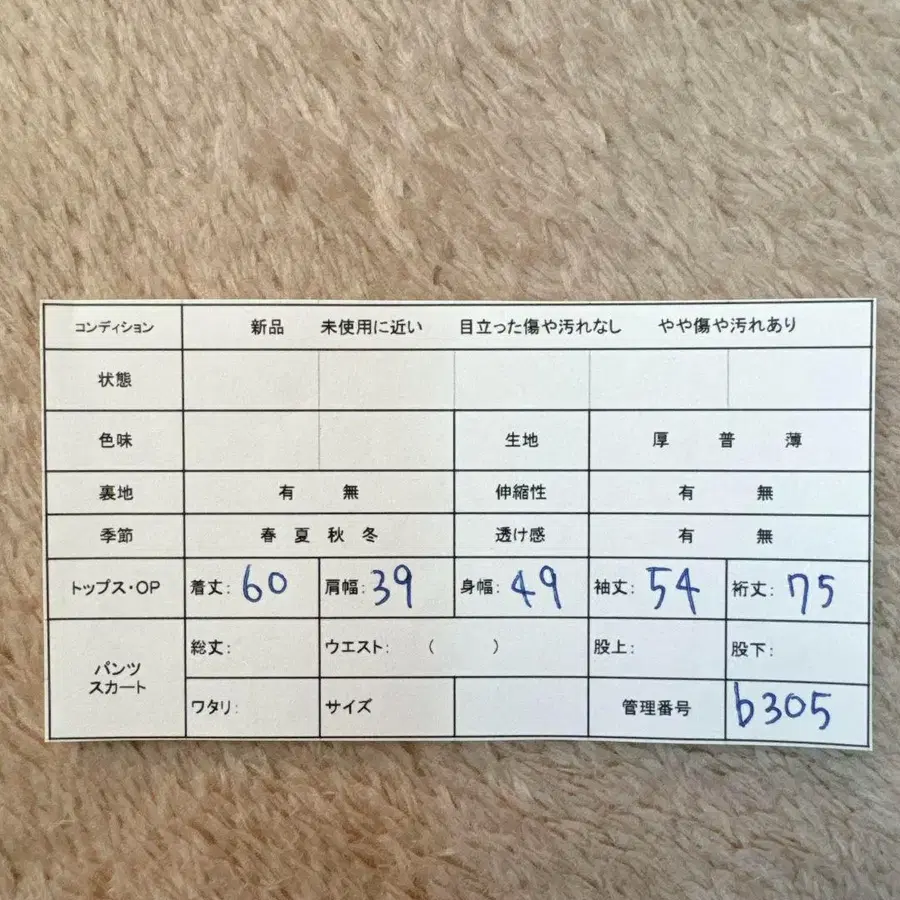 コンディション 新品 未使用に近い 目立った傷や汚れなし やや傷や汚れあり
状態
色味 生地 厚 普 薄
裏地 有 無 伸縮性 有 無
季節 春 夏 秋 冬 透け感 有 無
トップス・OP 着丈: 60 肩幅: 39 身幅: 49 袖丈: 54 裄丈: 75
パンツ スカート 総丈: ウエスト: ( ) 股上: 股下:
ワタリ: サイズ 管理番号 b305